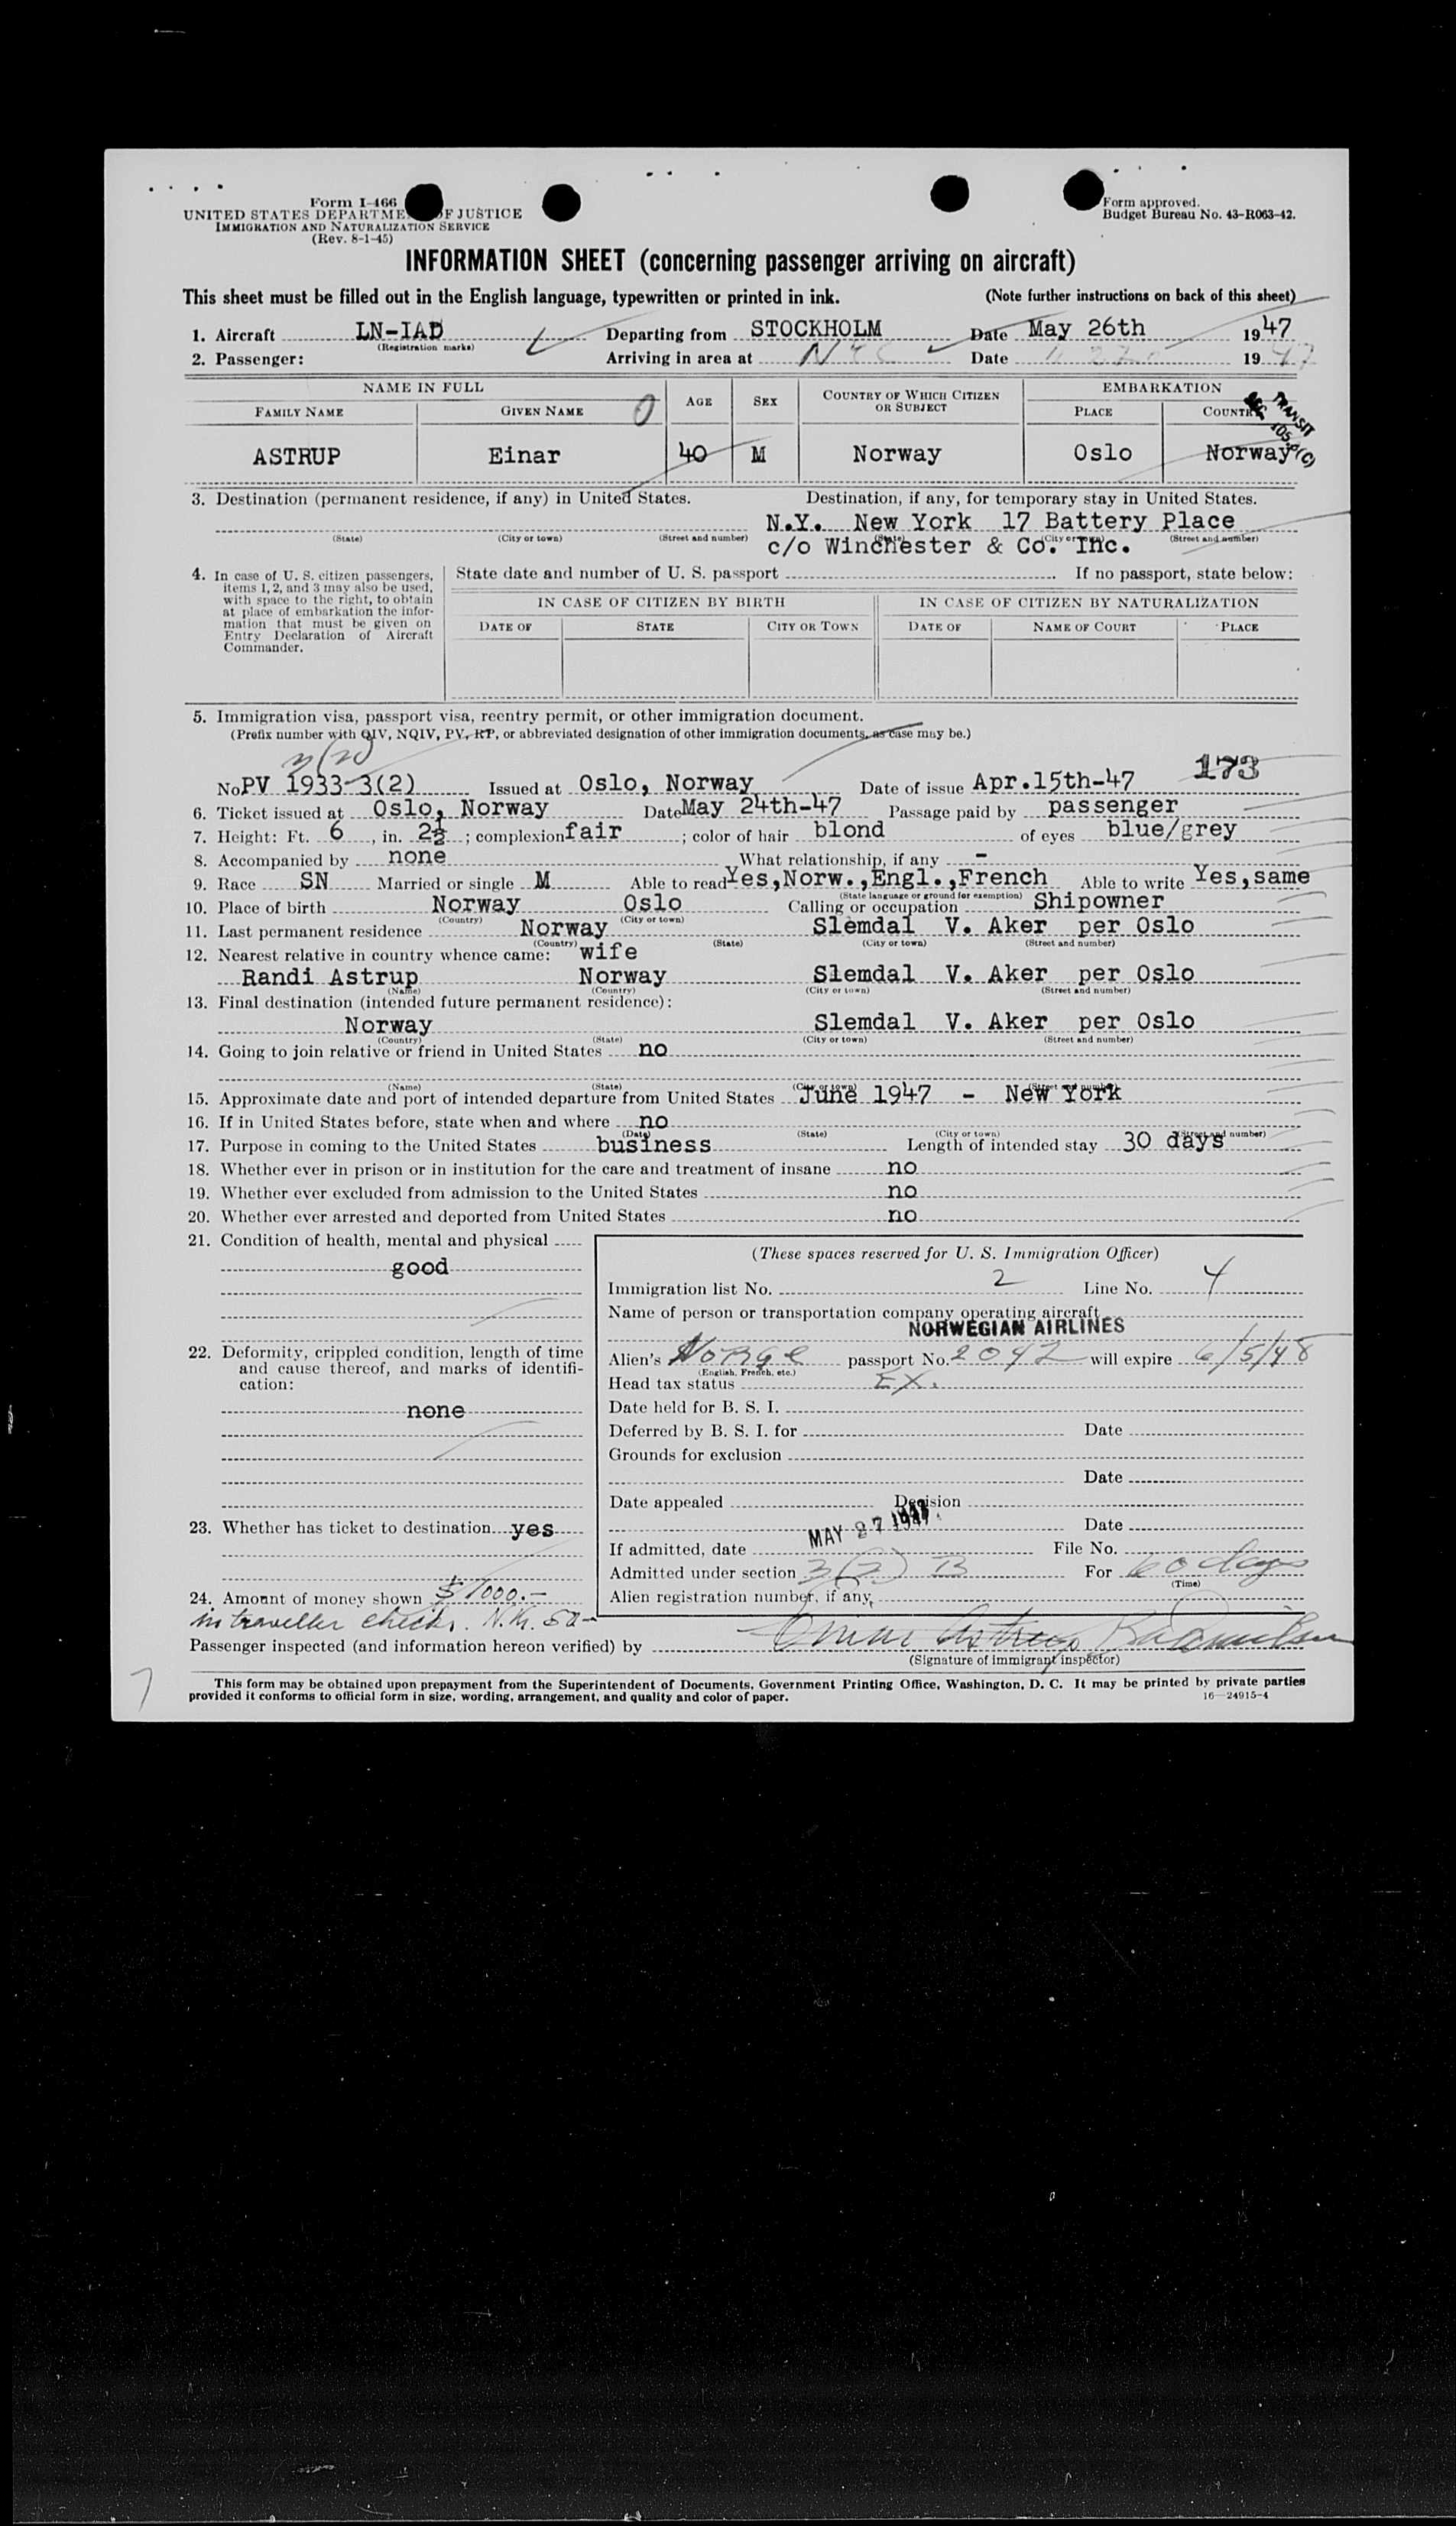 Form I-466
UNITED STATES DEPARTMENT OF JUSTICE
IMMIGRATION AND NATURALIZATION SERVICE
(Rev. 8-1-45)
Form approved.
Budget Bureau No. 43-R063-42.
INFORMATION SHEET (concerning passenger arriving on aircraft)
This sheet must be filled out in the English language, typewritten or printed in ink. (Note further instructions on back of this sheet)
1. Aircraft LN-IAD Departing from STOCKHOLM Date May 26th 1947
(Registration marks)
2. Passenger: Arriving in area at NYC Date 1947
NAME IN FULL AGE SEX COUNTRY OF WHICH CITIZEN OR SUBJECT EMBARKATION
FAMILY NAME GIVEN NAME PLACE COUNTRY
TRANSIT
ASTRUP Einar 40 M Norway Oslo Norway
3. Destination (permanent residence, if any) in United States. Destination, if any, for temporary stay in United States.
N.Y. New York 17 Battery Place
(State) (City or town) (Street and number) (State) (City or town) (Street and number)
c/o Winchester & Co. Inc.
4. In case of U. S. citizen passengers, items 1, 2, and 3 may also be used, with space to the right, to obtain at place of embarkation the information that must be given on Entry Declaration of Aircraft Commander.
State date and number of U. S. passport If no passport, state below:
IN CASE OF CITIZEN BY BIRTH IN CASE OF CITIZEN BY NATURALIZATION
DATE OF STATE CITY OR TOWN DATE OF NAME OF COURT PLACE
5. Immigration visa, passport visa, reentry permit, or other immigration document.
(Prefix number with QIV, NQIV, PV, RP, or abbreviated designation of other immigration documents, as case may be.)
3(2)
173
No. PV 1933-3(2) Issued at Oslo, Norway Date of issue Apr.15th-47
6. Ticket issued at Oslo, Norway Date May 24th-47 Passage paid by passenger
7. Height: Ft. 6, in. 2½; complexion fair; color of hair blond of eyes blue/grey
8. Accompanied by none What relationship, if any -
9. Race SN Married or single M Able to read Yes,Norw.,Engl.,French Able to write Yes,same
(State language or ground for exemption)
10. Place of birth Norway Oslo Calling or occupation Shipowner
(Country) (City or town)
11. Last permanent residence Norway Slemdal V. Aker per Oslo
(Country) (State) (City or town) (Street and number)
12. Nearest relative in country whence came: wife
Randi Astrup Norway Slemdal V. Aker per Oslo
(Name) (Country) (City or town) (Street and number)
13. Final destination (intended future permanent residence):
Norway Slemdal V. Aker per Oslo
(Country) (State) (City or town) (Street and number)
14. Going to join relative or friend in United States no
(Name) (State) (City or town) (Street and number)
15. Approximate date and port of intended departure from United States June 1947 - New York
16. If in United States before, state when and where no
(Date) (State) (City or town) (Street and number)
17. Purpose in coming to the United States business Length of intended stay 30 days
18. Whether ever in prison or in institution for the care and treatment of insane no
19. Whether ever excluded from admission to the United States no
20. Whether ever arrested and deported from United States no
21. Condition of health, mental and physical
good
22. Deformity, crippled condition, length of time and cause thereof, and marks of identification:
none
23. Whether has ticket to destination yes
24. Amount of money shown $1000.-
in traveller checks. N.Kr. 50-
(These spaces reserved for U. S. Immigration Officer)
Immigration list No. 2 Line No. 4
Name of person or transportation company operating aircraft
NORWEGIAN AIRLINES
Alien's Norge passport No. 2042 will expire 6/5/48
(English, French, etc.)
Head tax status EX.
Date held for B. S. I.
Deferred by B. S. I. for Date
Grounds for exclusion
Date
Date appealed Decision
Date
If admitted, date MAY 27 1947 File No.
Admitted under section 3(2) B For 60 days
(Time)
Alien registration number, if any,
Passenger inspected (and information hereon verified) by Einar Astrup
(Signature of immigrant inspector)
This form may be obtained upon prepayment from the Superintendent of Documents, Government Printing Office, Washington, D. C. It may be printed by private parties
provided it conforms to official form in size, wording, arrangement, and quality and color of paper. 16—24915-4
7